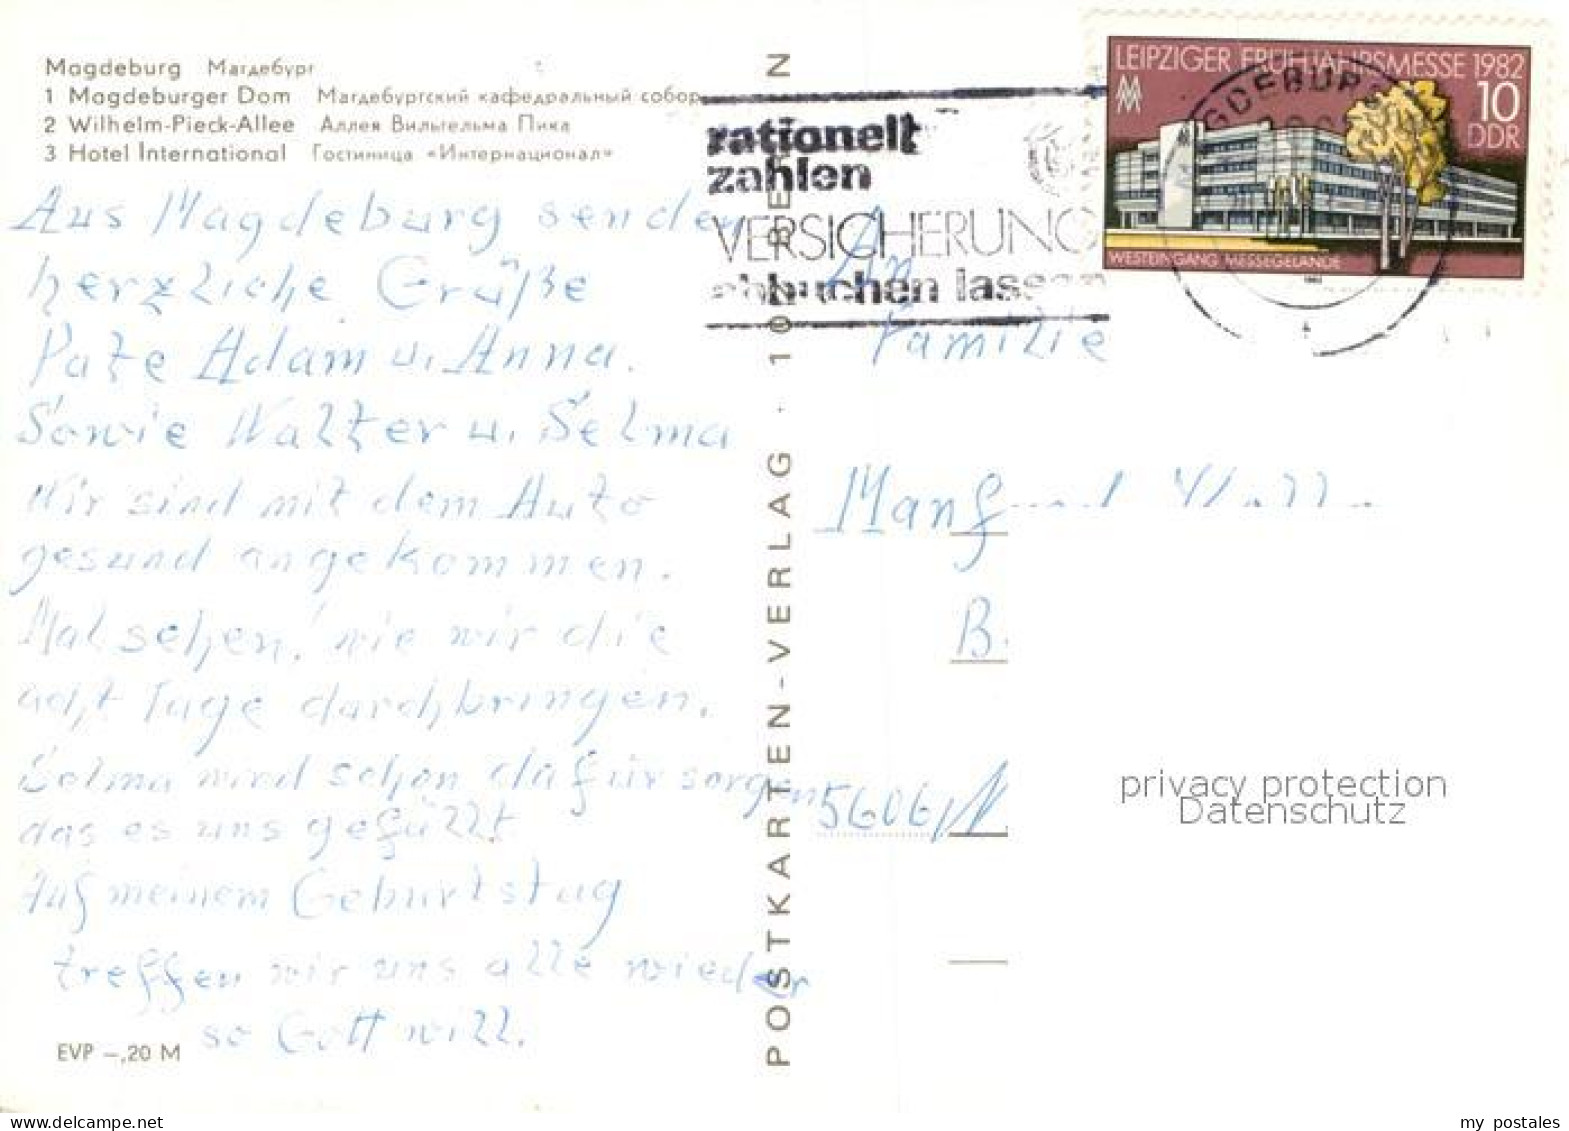 Magdeburg Магдебург
1 Magdeburger Dom Магдебургский кафедральный собор
2 Wilhelm-Pieck-Allee Аллея Вильгельма Пика
3 Hotel International Гостиница «Интернационал»
Aus Magdeburg senden
herzliche Grüße
Pate Adam u. Anna.
Sowie Walter u. Selma
Wir sind mit dem Auto
gesund angekommen.
Mal sehen, wie wir die
acht Tage durchbringen.
Selma wird schon dafür sorgen
das es uns gefällt
Auf meinem Geburtstag
treffen wir uns alle wieder
so Gott will.
EVP –,20 M
POSTKARTEN-VERLAG
rationell
zahlen
VERSICHERUNG
abbuchen lassen
LEIPZIGER FRÜHJAHRSMESSE 1982
10
DDR
WESTEINGANG MESSEGELÄNDE
1982
An
Familie
B.
5606
privacy protection
Datenschutz
my postales